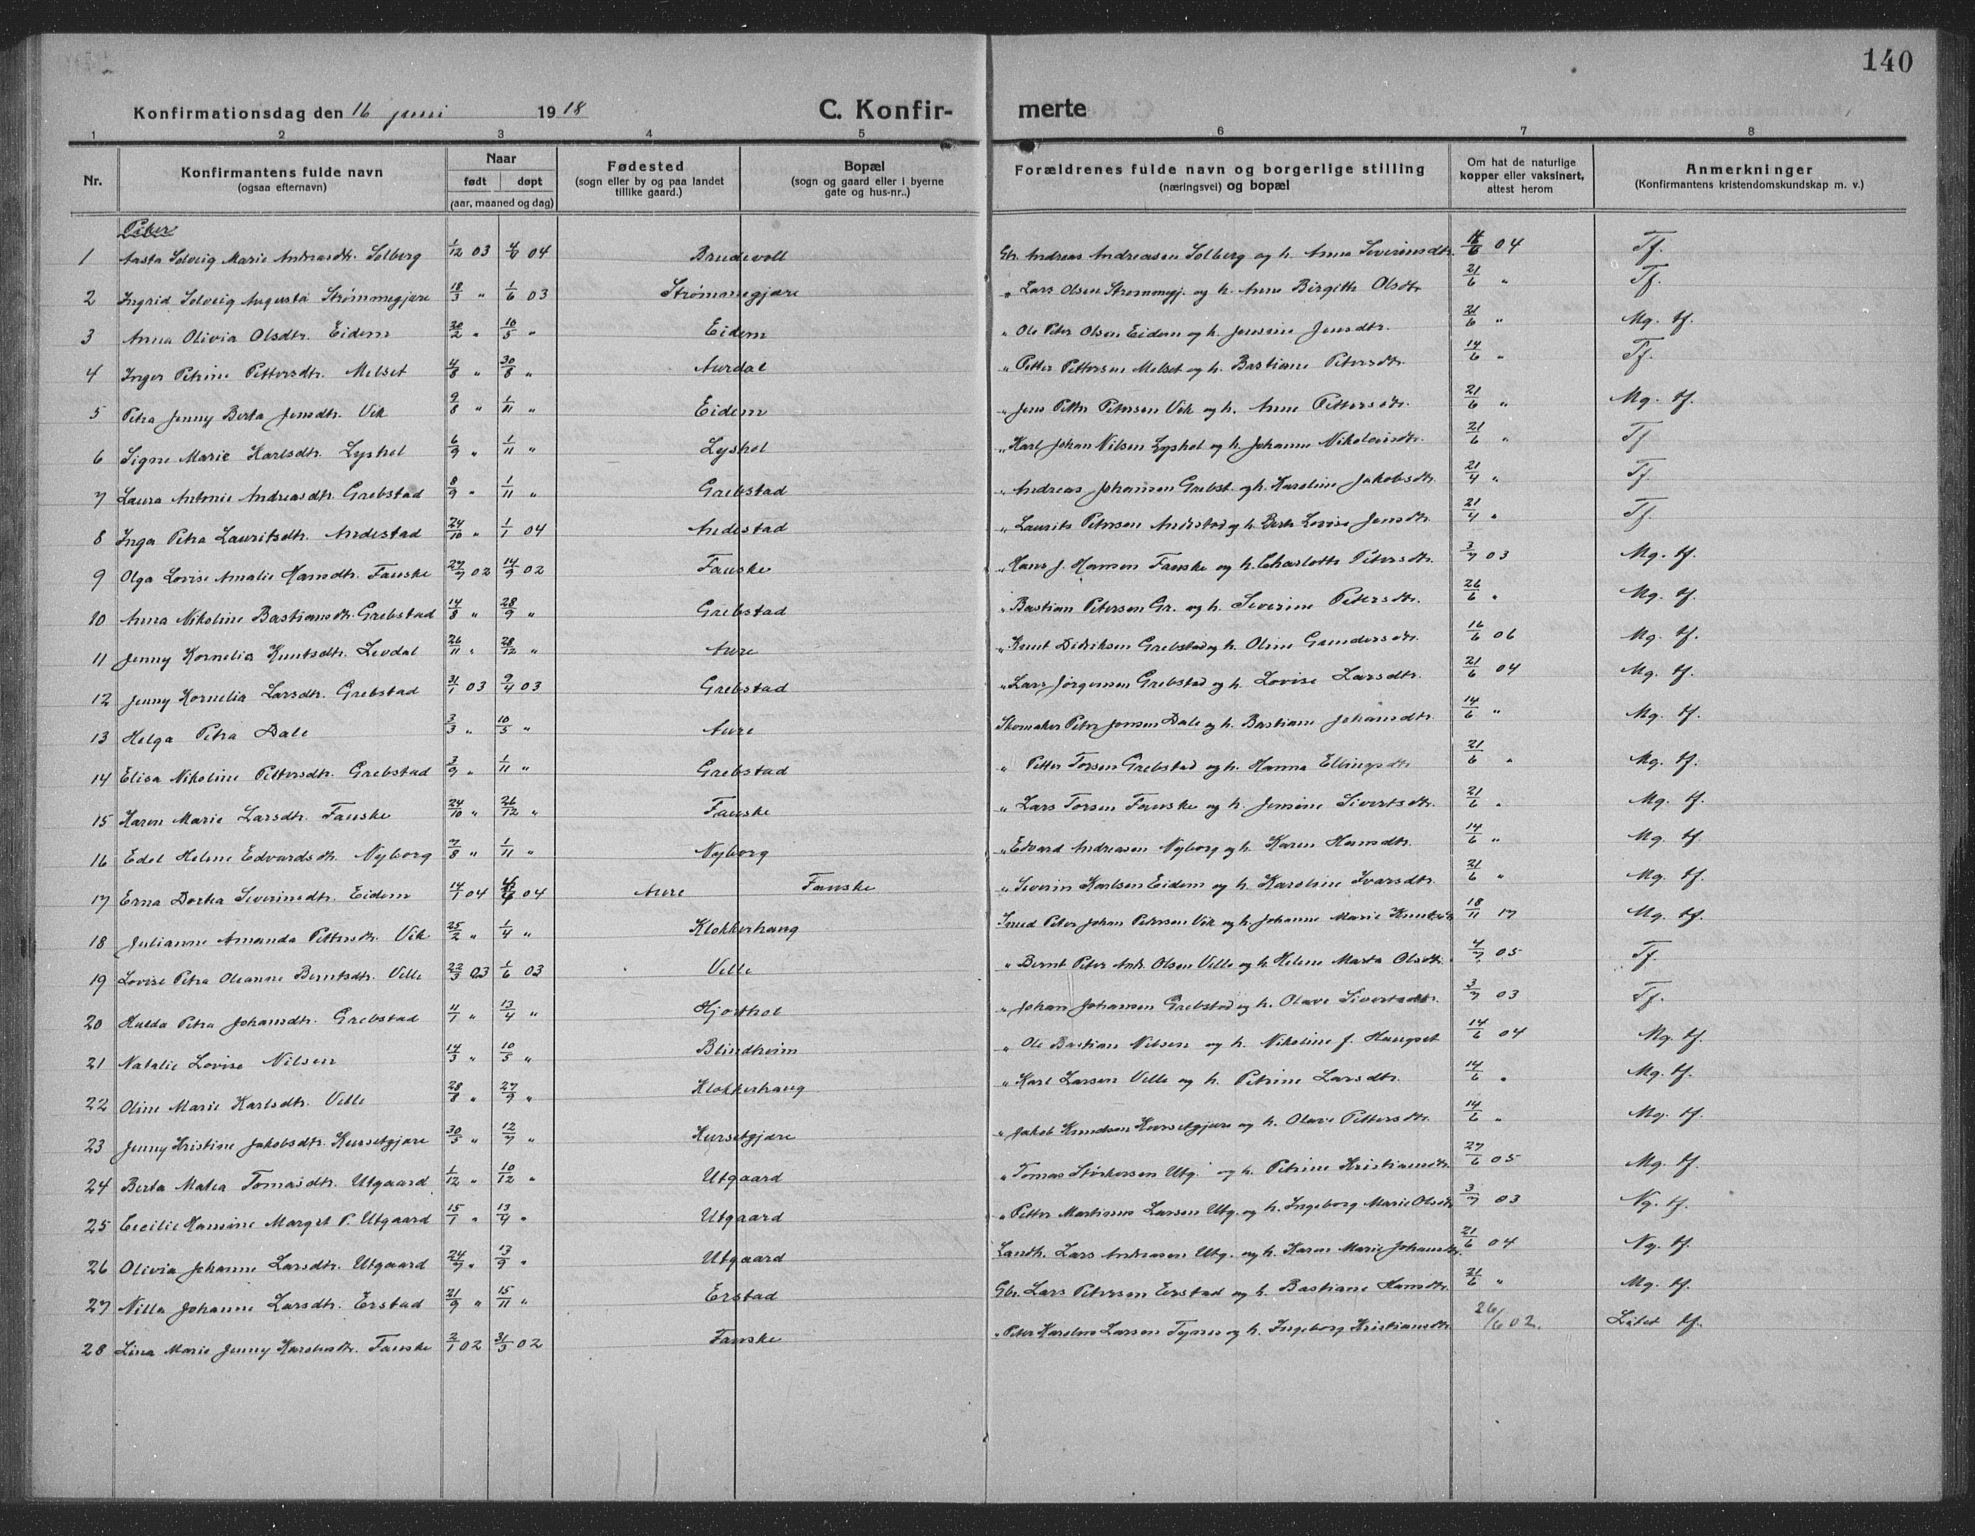 140
Konfirmationsdag den 16 juni 1918 C. Konfir- merte
1 2 3 4 5 6 7 8
Nr. Konfirmantens fulde navn (ogsaa efternavn) Naar født døpt (aar, maaned og dag) Fødested (sogn eller by og paa landet tillike gaard.) Bopæl (sogn og gaard eller i byerne gate og hus-nr..) Forældrenes fulde navn og borgerlige stilling (næringsvei) og bopæl Om hat de naturlige kopper eller vaksinert, attest herom Anmerkninger (Konfirmantens kristendomskundskap m. v.)
Piker
1 Aasta Solveig Marie Andreasdtr. Solberg 1/12 03 04 Brudevoll Gbr. Andreas Andreasen Solberg og h. Anna Severinsdtr. 14/6 04 Tf.
2 Ingrid Solveig Augusta Strømmegjære 18/3 " 1/6 03 Strømmegjære " Lars Olsen Strømmegj. og h. Anne Birgitte Olsdtr 21/6 " Tf.
3 Anna Olivia Olsdtr. Eidem 20/2 " 10/5 " Eidem " Ole Peter Olsen Eidem og h. Jensine Jensdtr. 21/6 " Mg. tf.
4 Inger Petrine Pettersdtr. Melset 4/8 " 30/8 " Aurdal " Petter Pettersen Melset og h. Bastiane Petersdtr. 14/6 " Tf.
5 Petra Jenny Berta Jensdtr. Vik 9/8 " 1/11 " Eidem " Jens Petter Petersen Vik og h. Anne Pettersdtr. 21/6 " Mg. tf.
6 Signe Marie Karlsdtr. Lyshol 6/9 " 1/11 " Lyshol " Karl Johan Nilsen Lyshol og h. Johanne Nikolaisdtr. 21/6 " Tf
7 Laura Antonie Andreasdtr. Grebstad 8/9 " 1/11 " Grebstad " Andreas Johansen Grebst. og h. Karoline Jakobsdtr. 21/4 " Tf.
8 Inga Petra Lauritsdtr. Andestad 24/10 " 1/1 04 Andestad " Laurits Petersen Andestad og h. Berte Lovise Jensdtr. 21/4 " Tf.
9 Olga Lovise Amalie Hansdtr. Fauske 27/7 02 14/9 02 Fauske " Hans J. Hansen Fauske og h. Charlotte Petersdtr. 3/7 03 Mg. tf.
10 Anna Nikoline Bastiansdtr. Grebstad 14/8 " 28/9 " Grebstad " Bastian Petersen Gr. og h. Severine Petersdtr. 26/6 " Mg. tf.
11 Jenny Kornelia Knutsdtr. Levdal 26/11 " 28/12 " Aure " Knut Didriksen Grebstad og h. Oline Gundersdtr. 16/6 06 Mg. tf.
12 Jenny Kornelia Larsdtr. Grebstad 31/1 03 9/4 03 Grebstad " Lars Jørgensen Grebstad og h. Lovise Larsdtr. 21/6 04 Mg. tf.
13 Helga Petra Dale 3/3 " 10/5 " Aure Skomaker Peter Jonsen Dale og h. Bastiane Johansdtr. 14/6 " Mg. tf.
14 Elisa Nikoline Pettersdtr. Grebstad 3/9 " 1/11 " Grebstad " Petter Torsen Grebstad og h. Hanna Ellingsdtr 21/6 " Mg. tf.
15 Karen Marie Larsdtr. Fauske 24/10 " 26/12 " Fauske " Lars Torsen Fauske og h. Jensine Sivertsdtr. 21/6 " Mg. tf.
16 Edel Helene Edvardsdtr. Nyborg 7/8 " 1/11 " Nyborg " Edvard Andreasen Nyborg og h. Karen Hansdtr. 14/6 " Mg. tf.
17 Erna Dorka Severinsdtr. Eidem 14/1 04 04 Aure Fauske " Severin Karlsen Eidem og h. Karoline Ivarsdtr. 21/6 " Mg. tf.
18 Julianne Amanda Pettersdtr. Vik 25/2 " 1/4 " Klokkerhaug Smed Peter Johan Petersen Vik og h. Johanne Marie Knutsdtr 18/11 17 Mg. tf.
19 Lovise Petra Oleanne Berntsdtr. Velle 22/3 03 1/6 03 Velle " Bernt Peter Andr. Olsen Velle og h. Helene Marta Olsdtr. 4/7 05 Tf.
20 Hulda Petra Johansdtr. Grebstad 4/1 " 13/4 " Hjorthol " Johan Johansen Grebstad og h. Olave Sivertsdtr. 3/7 03 Tf.
21 Natalie Lovise Nilsen 14/3 " 10/5 " Blindheim " Ole Bastian Nilsen og h. Nikoline f. Haugset 14/6 04 Mg. tf.
22 Oline Marie Karlsdtr. Velle 28/8 " 27/9 " Klokkerhaug " Karl Larsen Velle og h. Petrine Larsdtr. 14/6 " Mg. tf.
23 Jenny Kristine Jakobsdtr. Kursetgjære 30/5 " 12/7 " Kursetgjære " Jakob Knudsen Kursetgjære og h. Olave Pettersdtr. 14/6 " Mg. tf.
24 Berta Matea Tomasdtr. Utgaard 1/12 " 10/12 " Utgaard " Tomas Størkersen Utg. og h. Petrine Kristiansdtr. 27/6 05 Mg. tf.
25 Cecilie Hansine Marget P. Utgaard 15/7 " 13/9 " Utgaard " Petter Martinus Larsen Utg. og h. Ingeborg Marie Olsdtr 3/7 03 Ng. tf.
26 Olivia Johanne Larsdtr. Utgaard 24/7 " 13/9 " Utgaard Landh. Lars Andreasen Utg. og h. Karen Marie Johansdtr. 21/6 04 Ng. tf.
27 Nilla Johanne Larsdtr. Erstad 21/9 " 15/11 " Erstad Gbr. Lars Petersen Erstad og h. Bastiane Hansdtr. 21/6 " Mg. tf.
28 Lina Marie Jenny Karolusdtr. Fauske 2/1 02 31/3 02 Fauske " Peter Karolus Larsen Tynes og h. Ingeborg Kristiansdtr. 26/6 02. Litet tf.